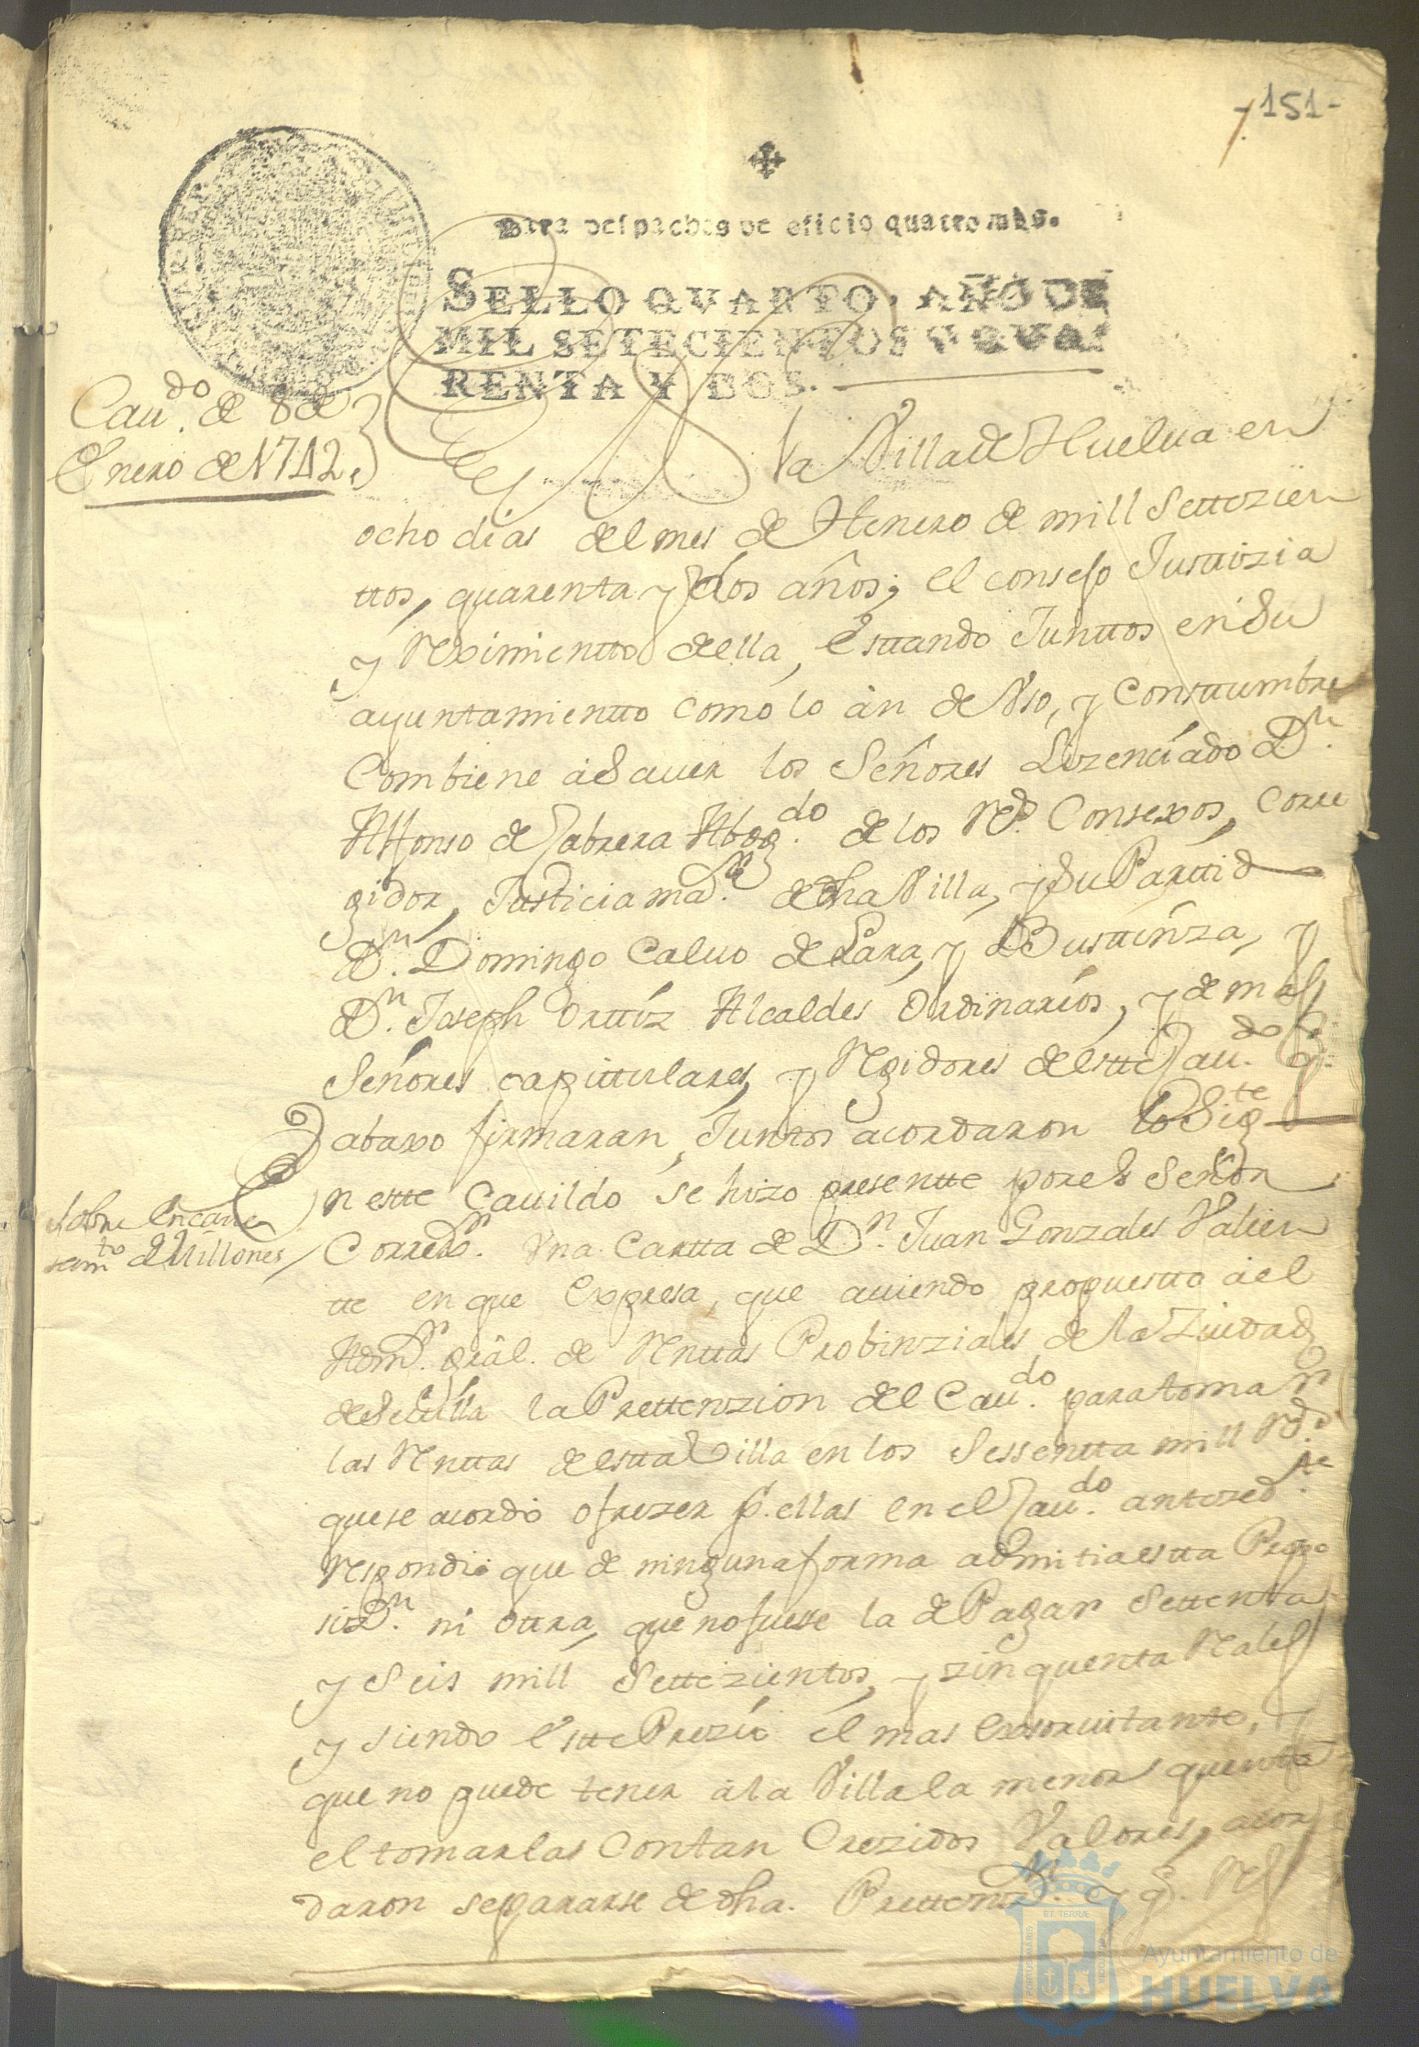 - 151 -
Para despachos de oficio quatro mrs.
SELLO QVARTO, AÑO DE
MIL SETECIENTOS Y QVA-
RENTA Y DOS.
Cau.do de 8 de
Enero de 1742
En la Villa de Huelua en
ocho dias del mes de Henero de mill Settezien
ttos, quarenta y dos años; el consejo Justtizia
y Reximientto della, Esttando Junttos en Su
ayuntamientto como lo àn de Vso, y Consttumbre
Combiene àSauer los Señores Lizenciado Dn.
Alfonso de Cabrera Abog.do de los Rs. Consexos, Corre
gidor, Justicia mar. de dha Villa, y Su Parttid
Dn. Domingo Caluo de Lara, y Busttinza, y
Dn. Joseph Orttiz Alcaldes Ordinarios, y demas
Señores capittulares, y Rexidores destte Cau.do q.
abaxo firmaran, Juntos acordaron lo Sig.te
En estte Cauildo se hizo presentte por el Señor
Sobre Encaue
zam.to de Millones
Correxr. Vna Cartta de Dn. Juan Gonzales Valien
tte en que Expresa, que auiendo propuestto àel
Admr. gràl. de Renttas Probinziales de la Ziudad
de Seuilla la Prettenzion del Cau.do para tomar
las Renttas de estta Villa en los Sessentta mill Rs.
que se acordò ofrezer p. ellas en el Cau.do antezed.te
respondio que de ninguna forma admitia estta Propo
sizn. ni ottra, que no fuesse la de Pagar Settenta
y Seis mill Settezientos, y zinquenta Reales
y siendo estte Prezio el mas Exsorvitante, y
que no puede tener à la Villa la menor quentta
el tomarlas Con tan Crezidos Valores, acor
daron separarse de dha. Prettenzn. y q. Res
Ayuntamiento de
HUELVA